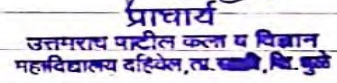 प्राचार्य
उत्तमराव पाटील कला व विज्ञान
महाविद्यालय दहिवेल, ता. साक्री, जि. धुळे